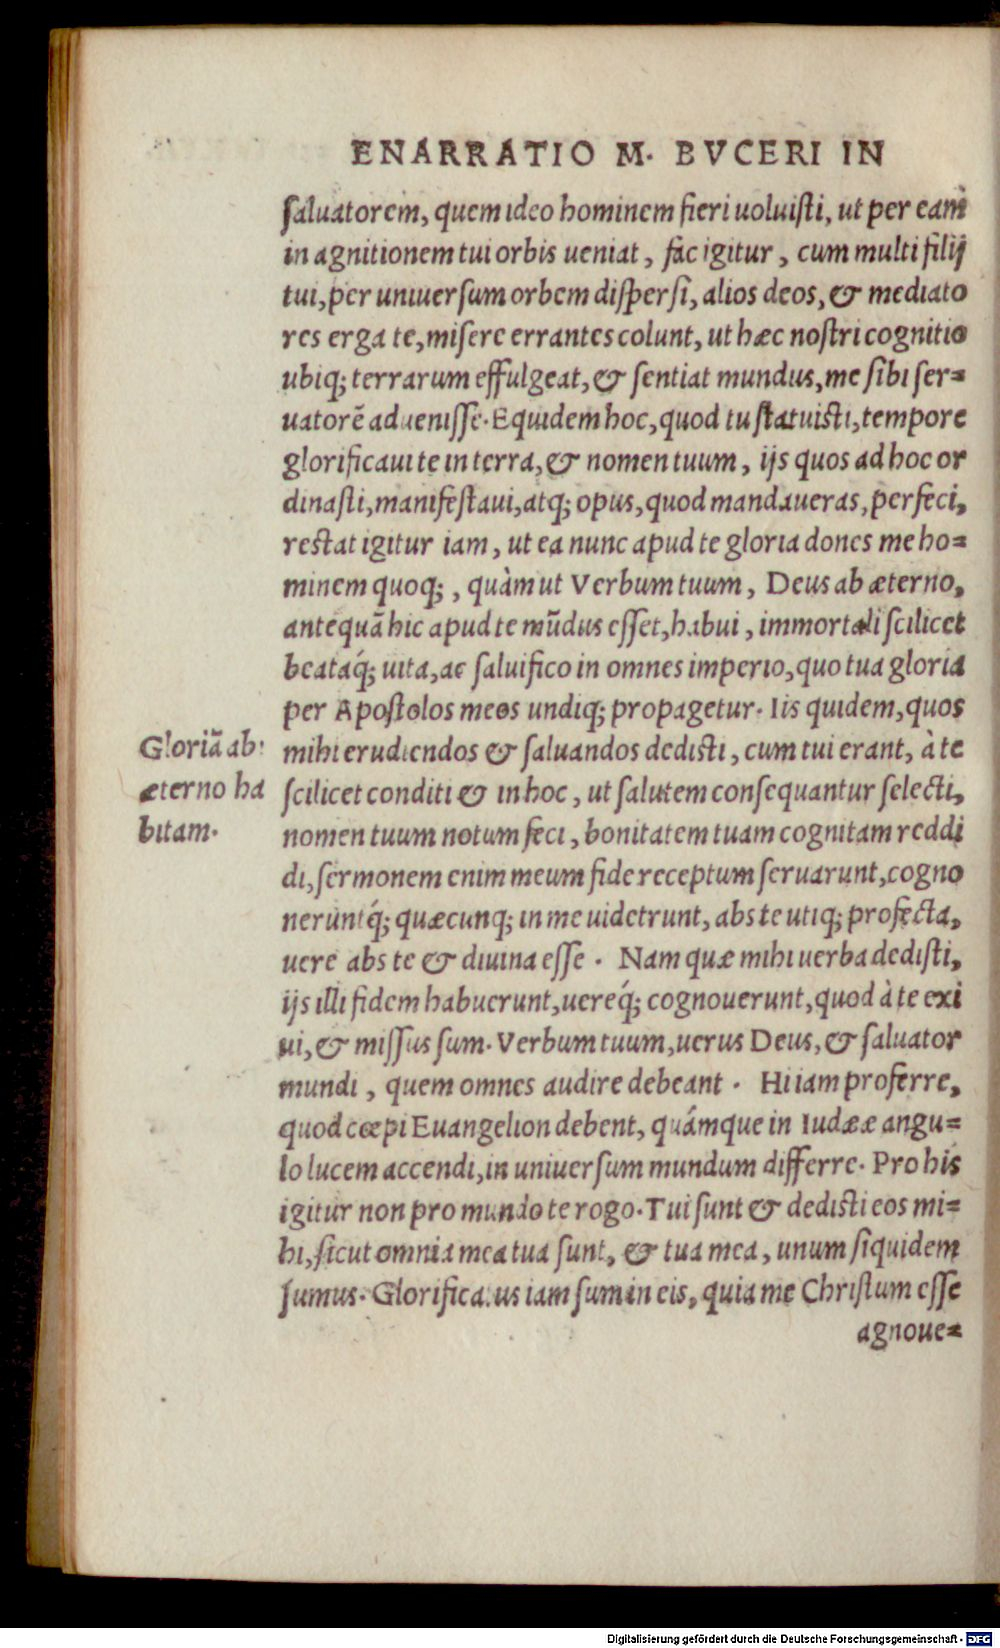 ENARRATIO M. BVCERI IN
ſaluatorem, quem ideo hominem fieri uoluiſti, ut per eam
in agnitionem tui orbis ueniat, fac igitur, cum multi filij
tui, per uniuerſum orbem diſperſi, alios deos, & mediato
res erga te, miſere errantes colunt, ut hæc noſtri cognitio
ubiq; terrarum effulgeat, & ſentiat mundus, me ſibi ſer=
uatorē adueniſſe. Equidem hoc, quod tu ſtatuiſti, tempore
glorificaui te in terra, & nomen tuum, ijs quos ad hoc or
dinaſti, manifeſtaui, atq; opus, quod mandaueras, perfeci,
reſtat igitur iam, ut ea nunc apud te gloria dones me ho=
minem quoq;, quàm ut Verbum tuum, Deus ab æterno,
antequā hic apud te mūdus eſſet, habui, immortali ſcilicet
beataq́; uita, ac ſaluifico in omnes imperio, quo tua gloria
per Apoſtolos meos undiq; propagetur. Iis quidem, quos
Gloriā ab
æterno ha
bitam.
mihi erudiendos & ſaluandos dediſti, cum tui erant, à te
ſcilicet conditi & in hoc, ut ſalutem conſequantur ſelecti,
nomen tuum notum feci, bonitatem tuam cognitam reddi
di, ſermonem enim meum fide receptum ſeruarunt, cogno
neruntq́; quæcunq; in me uidetrunt, abs te utiq; profecta,
uere abs te & diuina eſſe. Nam quæ mihi uerba dediſti,
ijs illi fidem habuerunt, uereq́; cognouerunt, quod à te exi
ui, & miſſus ſum. Verbum tuum, uerus Deus, & ſaluator
mundi, quem omnes audire debeant. Hi iam proferre,
quod cœpi Euangelion debent, quámque in Iudææ angu=
lo lucem accendi, in uniuerſum mundum differre. Pro his
igitur non pro mundo te rogo. Tui ſunt & dediſti eos mi=
hi, ſicut omnia mea tua ſunt, & tua mea, unum ſiquidem
ſumus. Glorificatus iam ſum in eis, quia me Chriſtum eſſe
agnoue=
Digitalisierung gefördert durch die Deutsche Forschungsgemeinschaft - DFG